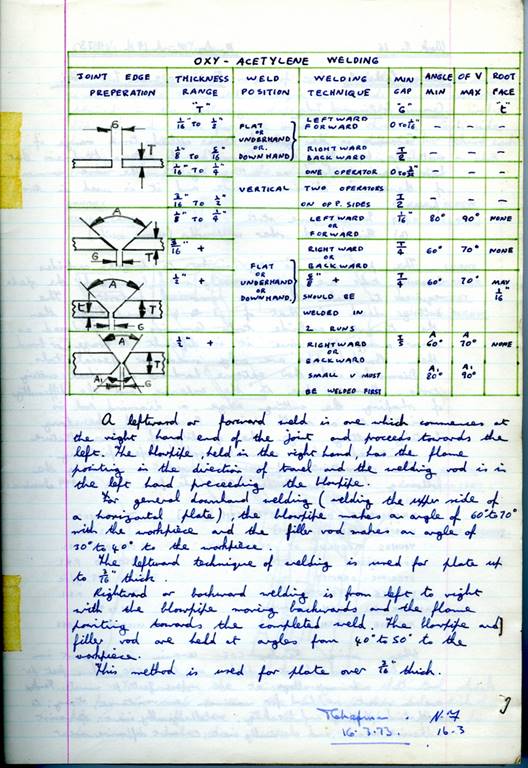 OXY - ACETYLENE WELDING
JOINT EDGE PREPERATION THICKNESS RANGE "T" WELD POSITION WELDING TECHNIQUE MIN GAP "G" ANGLE MIN OF V MAX ROOT FACE "t"
G T 1/16" TO 1/8" FLAT OR UNDERHAND OR DOWNHAND LEFTWARD FORWARD 0 TO 1/16" – – –
1/8" TO 5/16" RIGHTWARD BACKWARD T/2 – – –
1/16" TO 1/4" VERTICAL ONE OPERATOR – – –
3/16" TO 1/2" TWO OPERATORS ON OPP. SIDES T/2 – – –
A G T 1/8" TO 1/4" FLAT OR UNDERHAND OR DOWNHAND LEFTWARD OR FORWARD 1/16" 80° 90° NONE
5/16" + RIGHTWARD OR BACKWARD T/4 60° 70° NONE
A t T G 1/2" + 5/8" + SHOULD BE WELDED IN 2 RUNS T/4 60° 70° MAX 1/16"
A T A1 G 1/2" + RIGHTWARD OR BACKWARD SMALL V MUST BE WELDED FIRST A 60° A 70° NONE
A1 80° A1 90°
A leftward or forward weld is one which commences at
the right hand end of the joint and proceeds towards the
left. The blowpipe, held in the right hand, has the flame
pointing in the direction of travel and the welding rod is in
the left hand preceeding the blowpipe.
For general downhand welding (welding the upper side of
a horizontal plate), the blowpipe makes an angle of 60° to 70°
with the workpiece and the filler rod makes an angle of
30° to 40° to the workpiece.
The leftward technique of welding is used for plate up
to 3/16" thick.
Rightward or backward welding is from left to right
with the blowpipe moving backwards and the flame
pointing towards the completed weld. The blowpipe and
filler rod are held at angles from 40° to 50° to the
workpiece.
This method is used for plate over 3/16" thick.
T Chapman.
16.3.73.
16.3